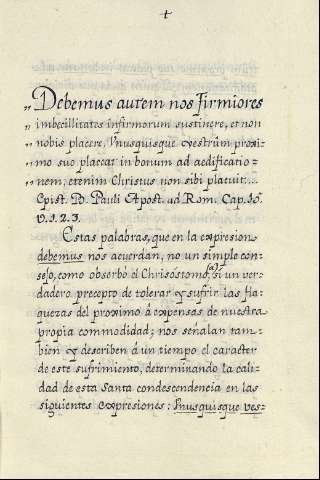 †
„ Debemus autem nos firmiores
„ imbecillitates infirmorum sustinere, et non
„ nobis placere, Vnusquisque vestrûm proxi-
„ mo suo placeat in bonum ad aedificatio-
„ nem, etenim Christus non sibi placuit...
Epist. B. Pauli Apost. ad Rom. Cap. 15.
v. 1. 2. 3.
Estas palabras, que en la expresion
debemus nos acuerdan, no un simple con-
sejo, como observó el Chrisóstomo, si un ver-
dadero precepto de tolerar y sufrir las fla-
quezas del proximo á expensas de nuestra
propia commodidad; nos señalan tam-
bien y describen á un tiempo el caracter
de este sufrimiento, determinando la cali-
dad de esta Santa condescendencia en las
siguientes expresiones: Vnusquisque ves-